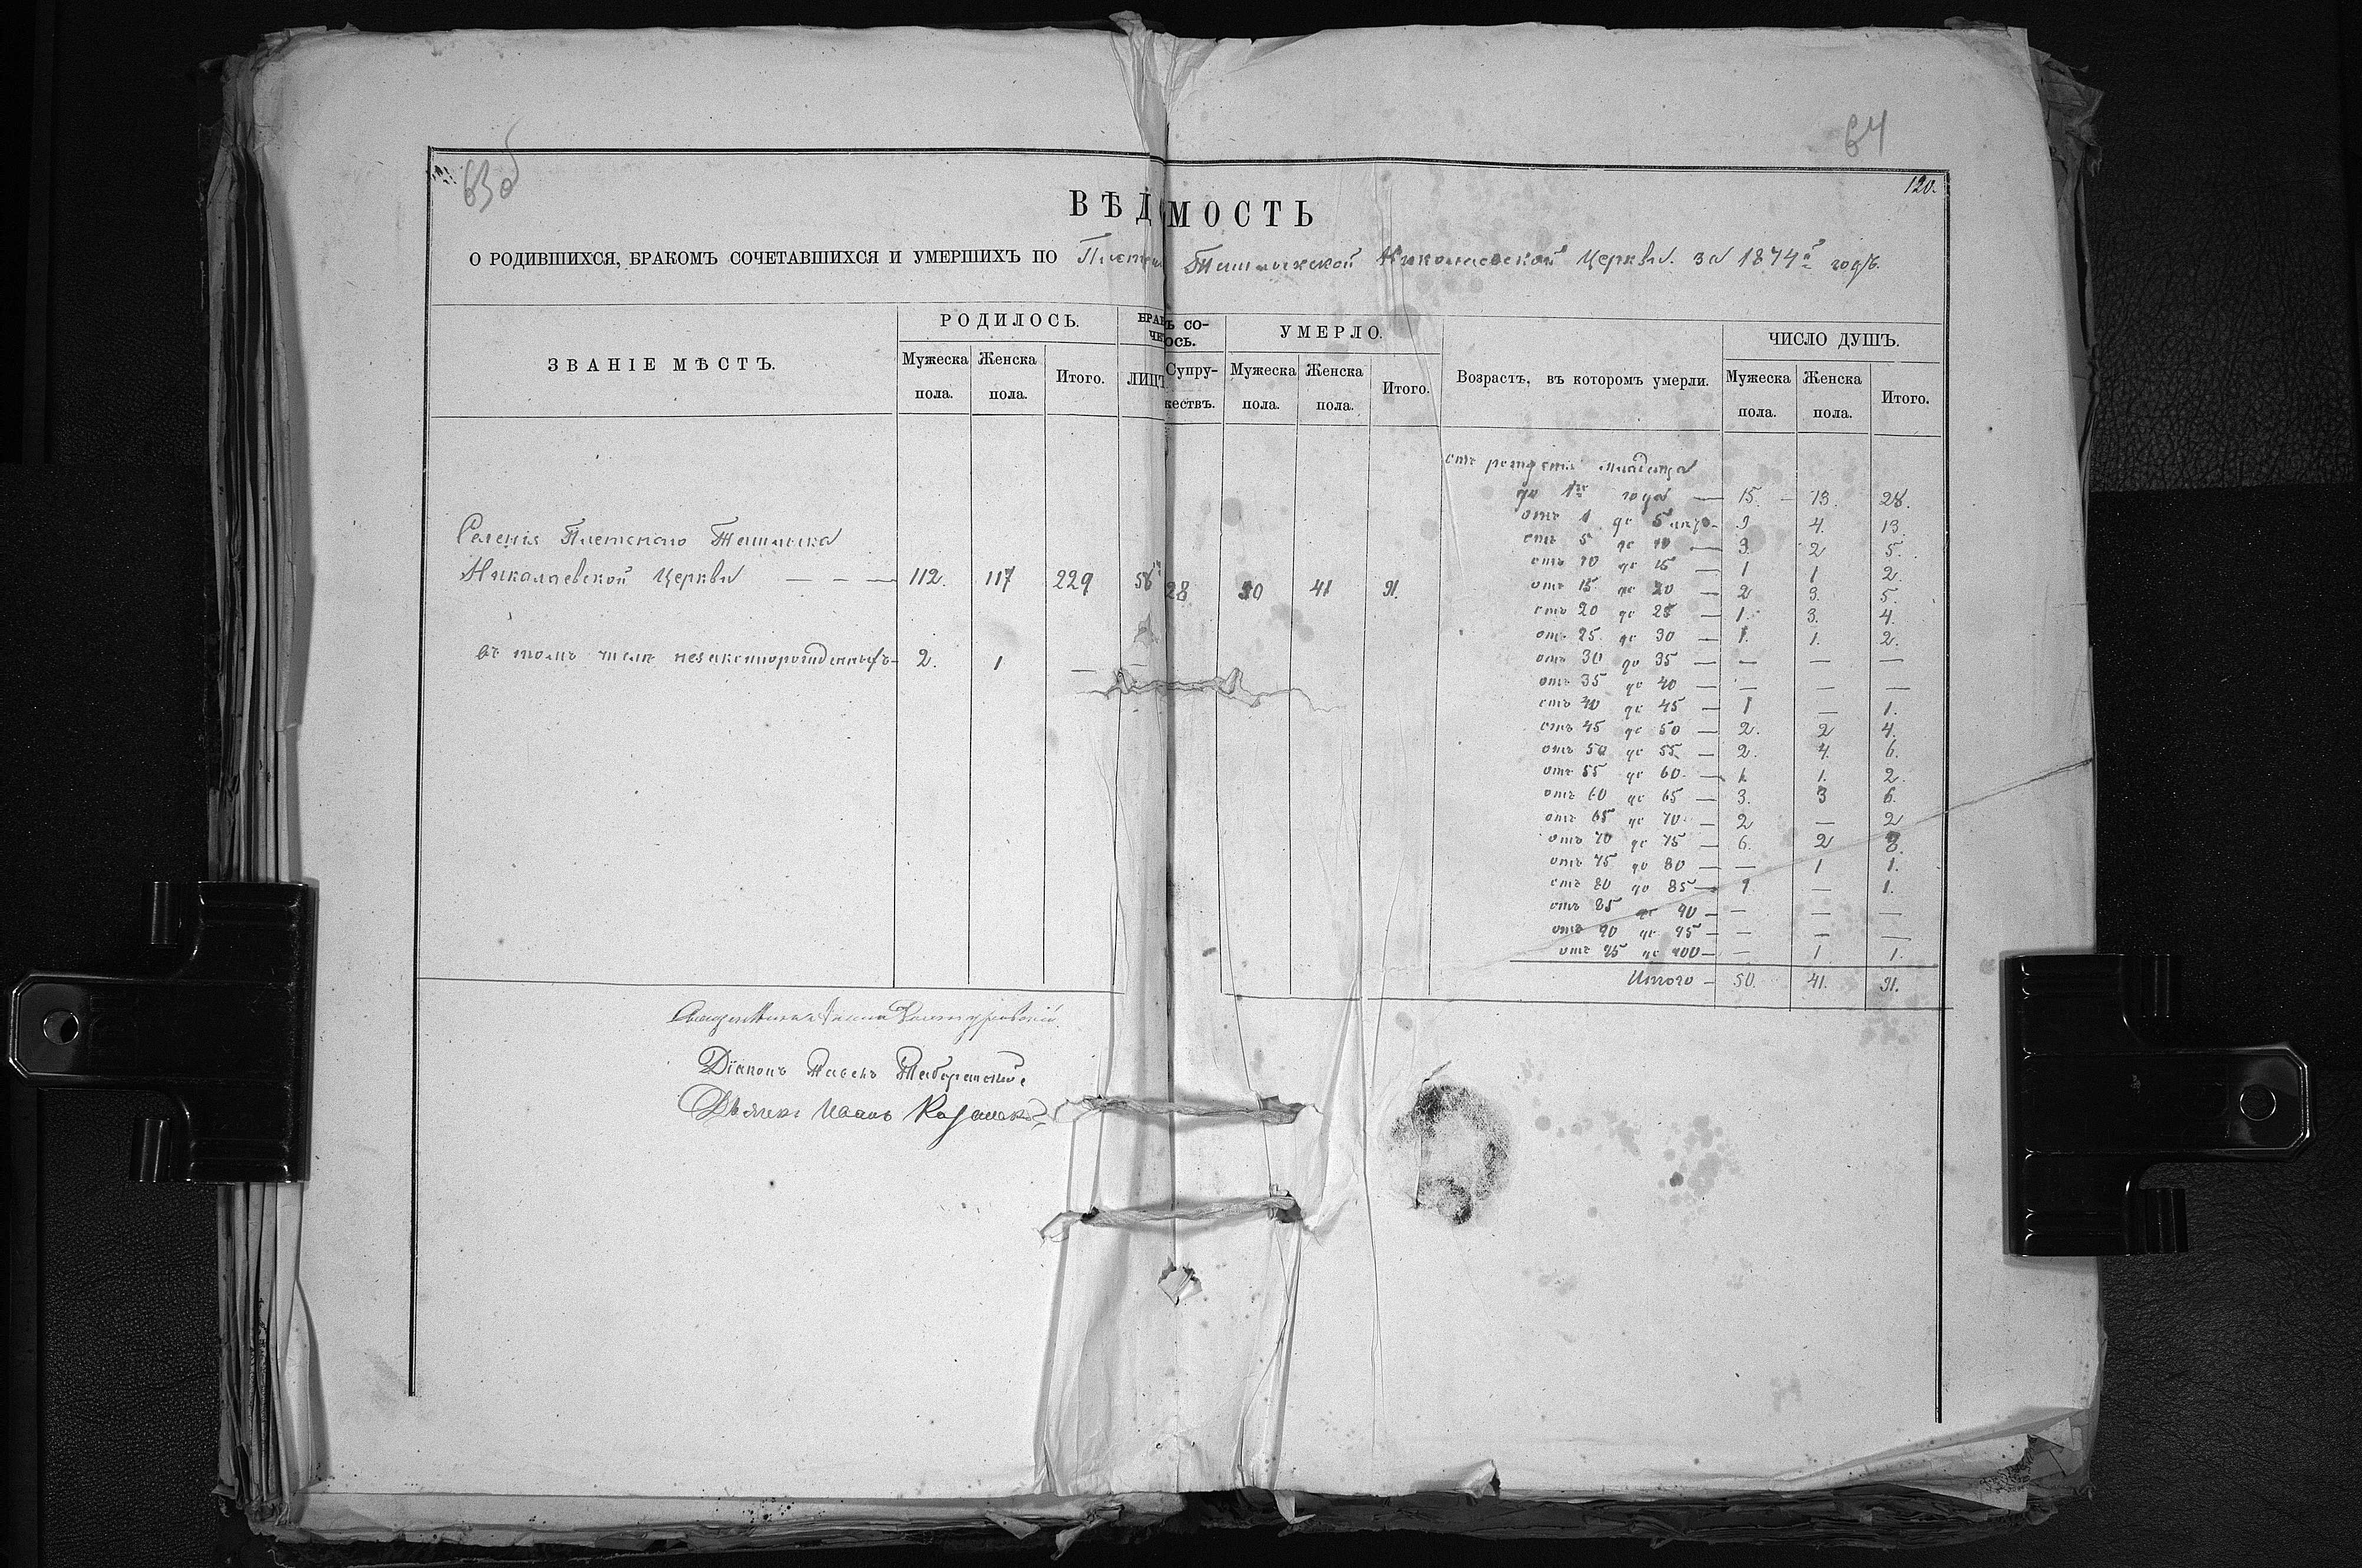 63об
64
120.
ВѢДОМОСТЬ
О РОДИВШИХСЯ, БРАКОМЪ СОЧЕТАВШИХСЯ И УМЕРШИХЪ ПО Плетен Ташлыкской Николаевской Церкви за 1874й годъ.
ЗВАНІЕ МѢСТЪ. РОДИЛОСЬ. БРАКЪ СО- УМЕРЛО. Возрастъ, въ которомъ умерли. ЧИСЛО ДУШЪ.
ЧЕ ОСЬ.
Мужеска пола. Женска пола. Итого. ЛИЦЪ Супру-жествъ. Мужеска пола. Женска пола. Итого. Мужеска пола. Женска пола. Итого.
Селенія Плетенаго Ташлыка
Николаевской Церкви — — — 112. 117 229 56 28 50 41 91.
въ томъ числѣ незаконнорожденныхъ — 2. 1 — —
отъ рожденія младенца
до 1го года — 15. 13. 28.
отъ 1 до 5 лѣтъ 9 4. 13
отъ 5 до 10 — 3. 2 5.
отъ 10 до 15 — 1 1 2.
отъ 15 до 20 — 2 3. 5.
отъ 20 до 25 — 1. 3. 4.
отъ 25 до 30 — 1. 1. 2.
отъ 30 до 35 — — — —
отъ 35 до 40 — — — —
отъ 40 до 45 — 1 — 1.
отъ 45 до 50 — 2. 2 4.
отъ 50 до 55 — 2. 4. 6.
отъ 55 до 60 — 1. 1. 2.
отъ 60 до 65 — 3. 3 6.
отъ 65 до 70 — 2 — 2
отъ 70 до 75 — 6. 2 8.
отъ 75 до 80 — — 1 1.
отъ 80 до 85 — 1 — 1.
отъ 85 до 90 — — — —
отъ 90 до 95 — — — —
отъ 95 до 100 — — 1 1.
Итого — 50. 41. 91.
Священникъ
Діаконъ Павелъ
Дьячекъ Иванъ